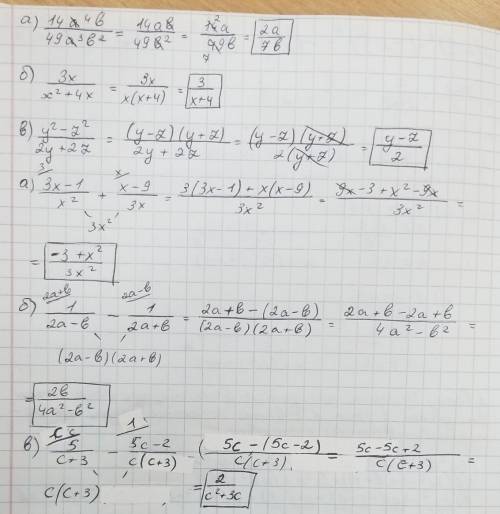 а) 14a⁴b/49a³b² = 14ab/49b² = 14²a/49₇b = 2a/7b
б) 3x/(x²+4x) = 3x/(x(x+4)) = 3/(x+4)
в) (y²-z²)/(2y+2z) = (y-z)(y+z)/(2y+2z) = (y-z)(y+z)/(2(y+z)) = (y-z)/2
а) 3/ (3x-1)/x² + x/ (x-9)/3x = (3(3x-1)+x(x-9))/3x² = (9x-3+x²-9x)/3x² =
3x²
= (-3+x²)/3x²
б) 2a+b/ 1/(2a-b) - 2a-b/ 1/(2a+b) = (2a+b-(2a-b))/((2a-b)(2a+b)) = (2a+b-2a+b)/(4a²-b²) =
(2a-b)(2a+b)
= 2b/(4a²-b²)
в) 5/(c+3) - 1/ (5c-2)/(c(c+3)) - (5c-(5c-2))/(c(c+3) = (5c-5c+2)/(c(c+3)) =
c(c+3)
= 2/(c²+3c)